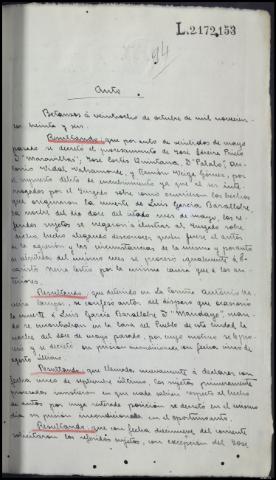 L.2172.153
94
Auto
Betanzos á veintiocho de octubre de mil novecien-
tos treinta y seis.
Resultando: que por auto de veintidos de mayo
pasado se decretó el procesamiento de José Pereira Prieto
"Maravillas"; José Cortés Quintana "Pelalo", An-
tonio Vidal Valiamonde, y Ramón Veiga Gómez, por
el supuesto delito de encubrimiento ya que al ser inte-
rrogados por el Juzgado sobre como ocurrieron los hechos
que originaron la muerte de Luis García Baralobre
la noche del dia doce del citado mes de mayo, los re-
feridos sujetos se negaron á ilustrar al Juzgado sobre
dichos hechos alegando desconocer quien fuese el autor
de la agresión y las circunstancias de la misma y
de del mismo mes se procesó igualmente á
Neira por la misma causa que á los an-
teriores.
Resultando: que detenido en La Coruña Antonio
se confesó autor del disparo que ocasionó
la muerte á Luis García Baralobre cuan-
do se encontraban en la Casa del Pueblo de esta ciudad la
noche del doce de mayo pasado, por cuyo motivo se le proce-
só y se decretó su prisión incondicional con fecha cinco de
agosto último.
Resultando: que llamados nuevamente á declarar con
fecha cinco de septiembre último, los sujetos primeramente
procesados insistieron en que nada sabían respecto al hecho
de autos por cuya reiterada posición se decretó en el mismo
dia su prisión incondicional
Resultando: que con fecha diecinueve del corriente
solicitaron los referidos sujetos, con excepción del José